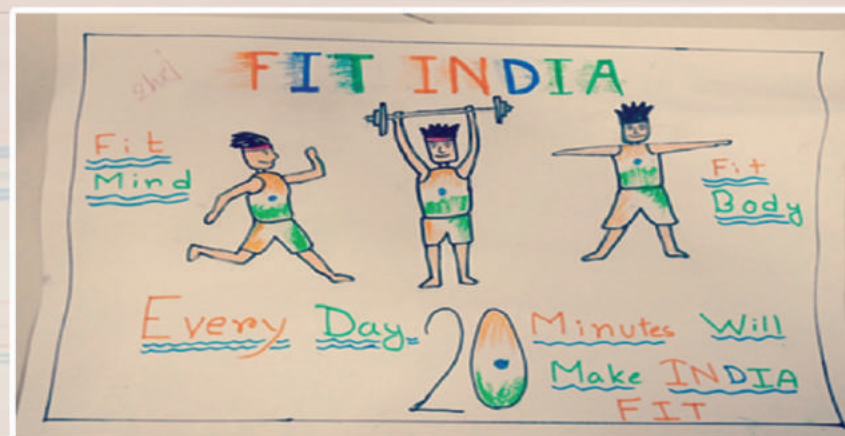 FIT INDIA
Fit
Mind
Fit
Body
Every Day 20 Minutes Will
Make INDIA
FIT